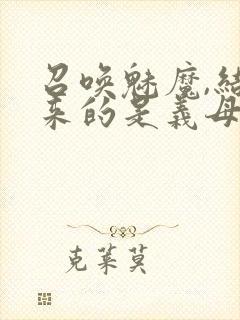 召唤魅魔,结
来的是義母
克莱莫